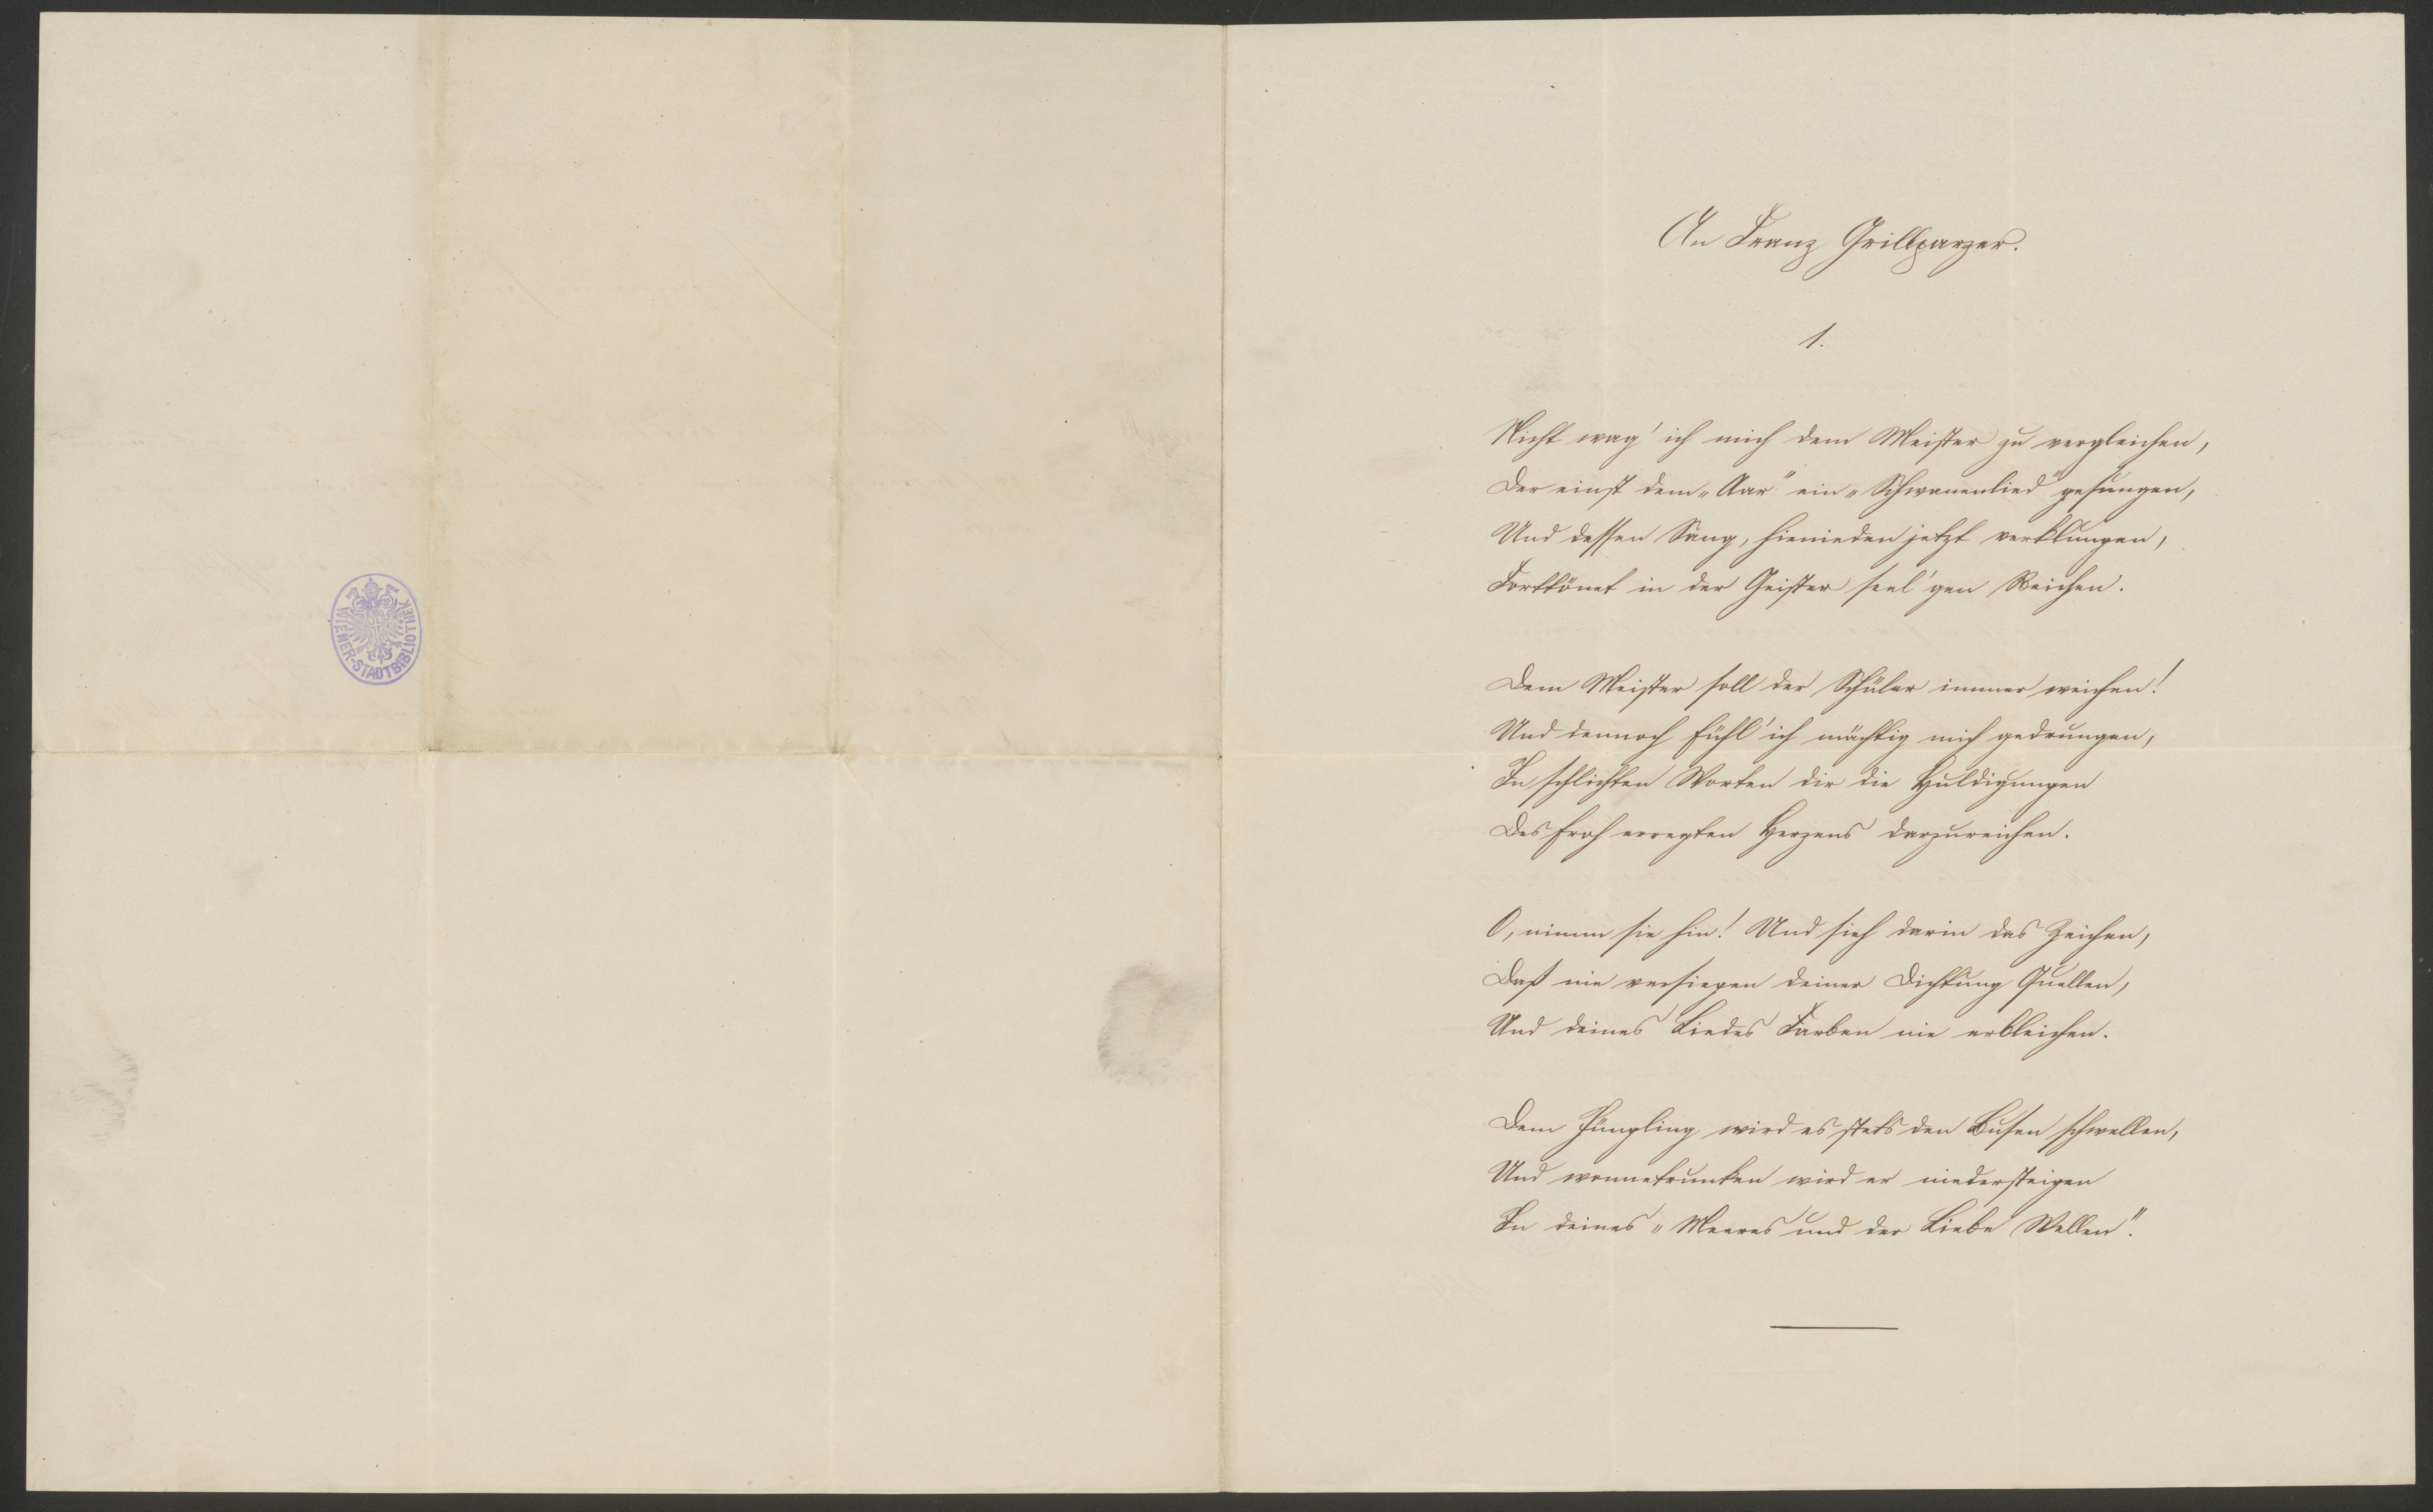 WIENER-STADTBIBLIOTHEK
An Franz Grillparzer.
1.
Nicht wag' ich mich dem Meister zu vergleichen,
Der einst dem „Aar" ein „Schwanenlied" gesungen,
Und dessen Sang, hienieden jetzt verklungen,
Forttönet in der Geister seel'gen Reichen.
Dem Meister soll der Schüler immer weichen!
Und dennoch fühl' ich mächtig mich gedrungen,
In schlichten Worten dir die Huldigungen
Des froh erregten Herzens darzureichen.
O, nimm sie hin! Und sieh darin das Zeichen,
Daß nie versiegen deiner Dichtung Quellen,
Und deines Liedes Farben nie erbleichen.
Dem Jüngling wird es stets den Busen schwellen,
Und wonnetrunken wird er niedersteigen
In deines „Meeres und der Liebe Wellen".